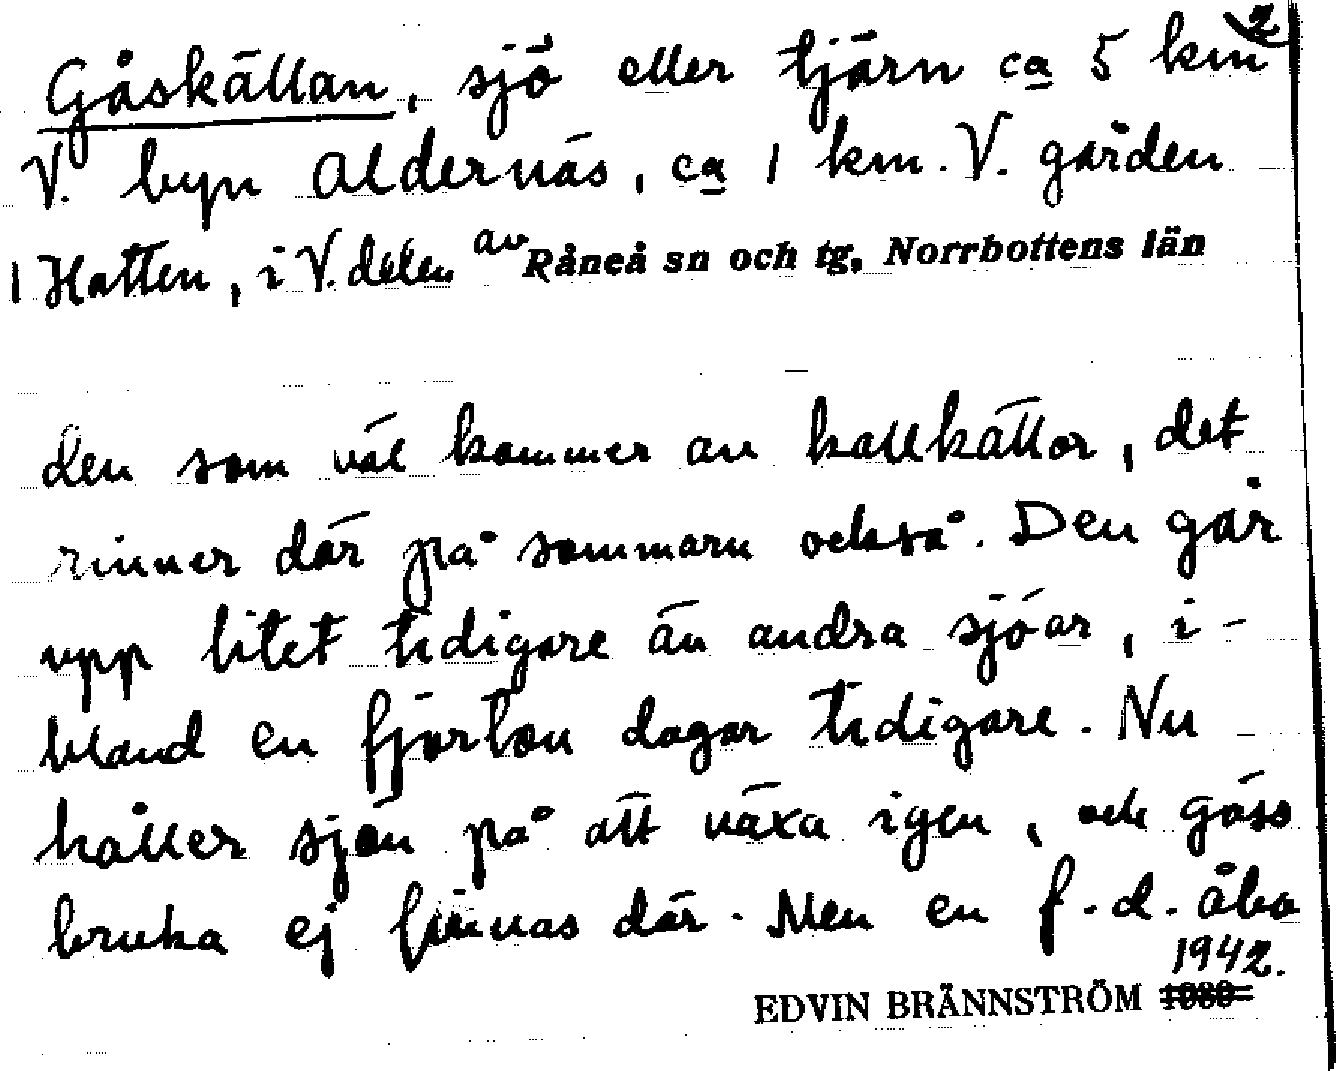 2
Gåskällan, sjö eller tjärn ca 5 km
V. byn Aldernäs, ca 1 km. V. gården
1 Hatten, i V. delen av Råneå sn och tg, Norrbottens län
den som väl kommer av kallkällor, det
rinner där på sommarn också. Den går
upp litet tidigare än andra sjöar, i-
bland en fjorton dagar tidigare. Nu
håller sjön på att växa igen, och gäss
bruka ej finnas där. Men en f.d. åbo
1942.
EDVIN BRÄNNSTRÖM 1939